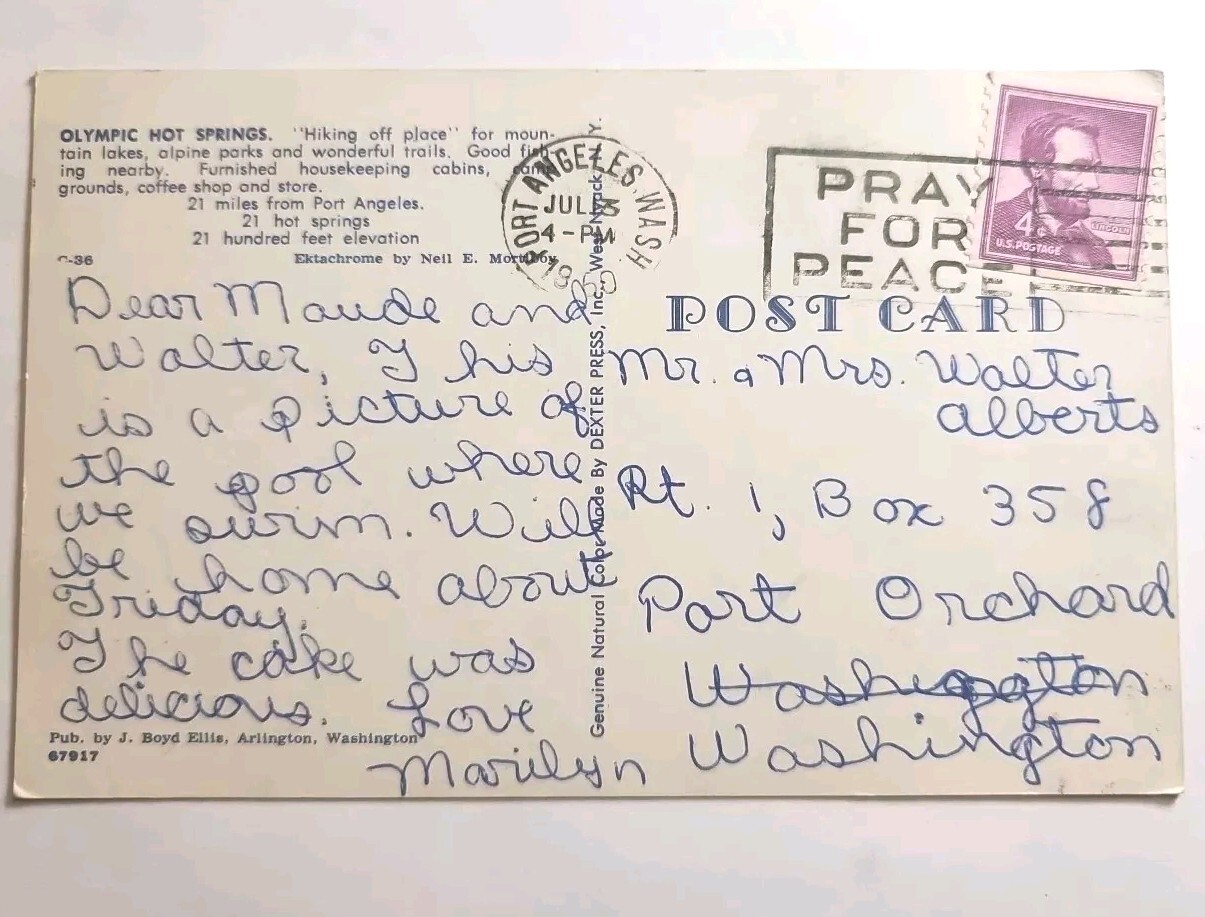 OLYMPIC HOT SPRINGS. "Hiking off place" for moun-
tain lakes, alpine parks and wonderful trails. Good fish-
ing nearby. Furnished housekeeping cabins, camp
grounds, coffee shop and store.
21 miles from Port Angeles.
21 hot springs
21 hundred feet elevation
C-36
Ektachrome by Neil E.
Dear Maude and
Walter, This
is a picture of
the pool where
we swim. Will
be home about
Friday.
The cake was
delicious. Love
Marilyn
Pub. by J. Boyd Ellis, Arlington, Washington
67917
Genuine Natural Color Made By DEXTER PRESS, Inc., West Nyack, N.Y.
PORT ANGELES, WASH
JUL
4-PM
19
PRAY
FOR
PEACE
4¢
LINCOLN
U.S. POSTAGE
POST CARD
Mr. & Mrs. Walter
Alberts
Rt. 1, Box 358
Port Orchard
Washington
Washington